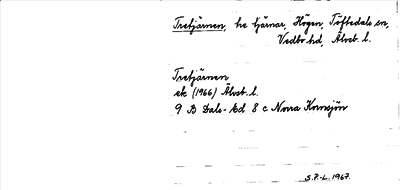 Tretjärnen, tre tjärnar, Högen, Töftedals sn,
Vedbo hd, Älvsb. l.
Tretjärnen
ek (1966) Älvsb. l.
9 B Dals-Ed 8 c Norra Kornsjön
S.F.-L. 1967.